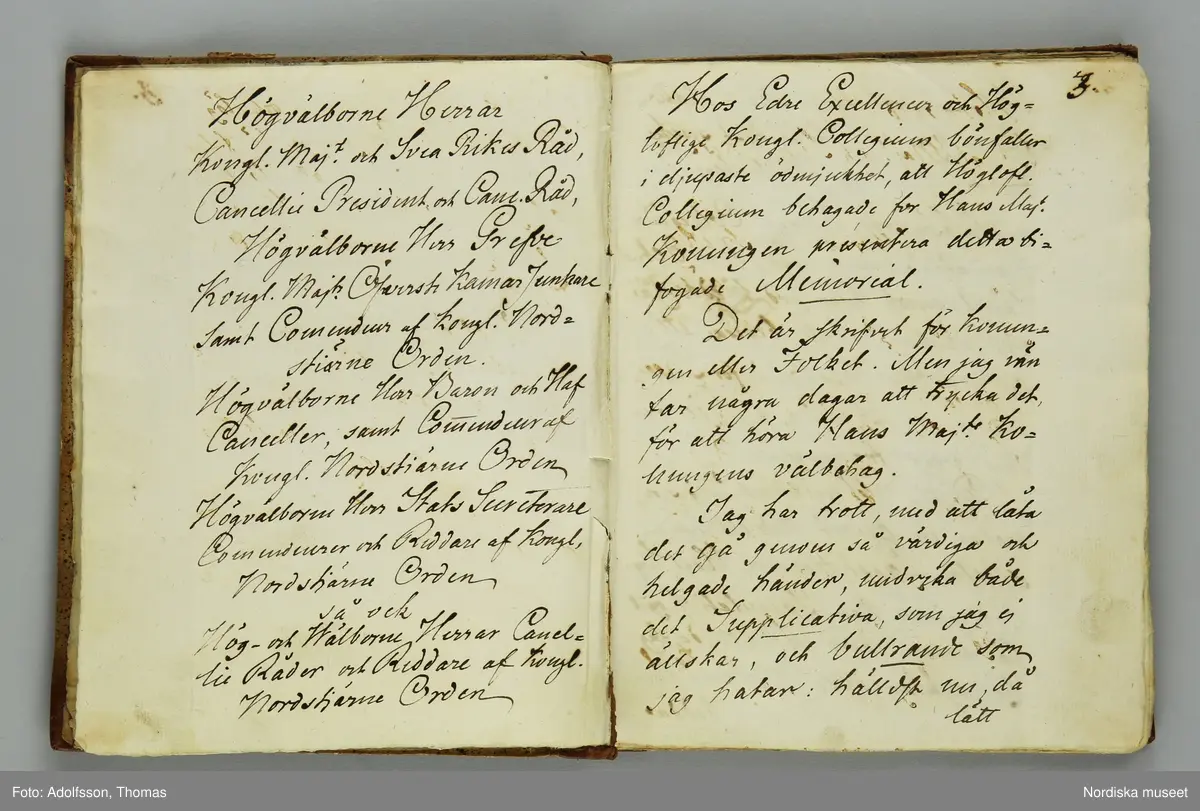 Högvälborne Herrar
Kongl. Majt. och Svea Rikes Råd,
Cancellie President, och Canc. Råd,
Högvälborne Herr Grefve
Kongl. Majts Öfverste Kamar Junkare
samt Comendeur af Kongl. Nord=
stiärne Orden.
Högvälborne Herr Baron och Haf
Canceller, samt Com̄endeur af
Kongl. Nordstiärne Orden
Högvälborne Herr Stats Secreterare
Comendeurer och Riddare af Kongl.
Nordstiärne Orden
så ock
Hög- och Wälborne Herrar Cancel=
lie Råder och Riddare af Kongl.
Nordstiärne Orden
3.
Hos Edre Excellencer och Hög=
loflige Kongl. Collegium bönfaller
i djupaste ödmjukhet, att Höglofl.
Collegium behagade for Hans Maj.
Konungen præsentera detta bi=
fogade Memorial.
Det är skrifvet för Konun=
gen eller Folket. Men jag vän
tar några dagar att trycka det,
för att höra Hans Majts Ko=
nungens välbehag.
Jag har trott, med att låta
det gå genom så värdiga och
helgade händer, undvika både
det Supplicativa, som jag ej
älskar, och bullrande som
jag hatar: hälldst nu, då
lätt
Foto: Adolfsson, Thomas
Nordiska museet